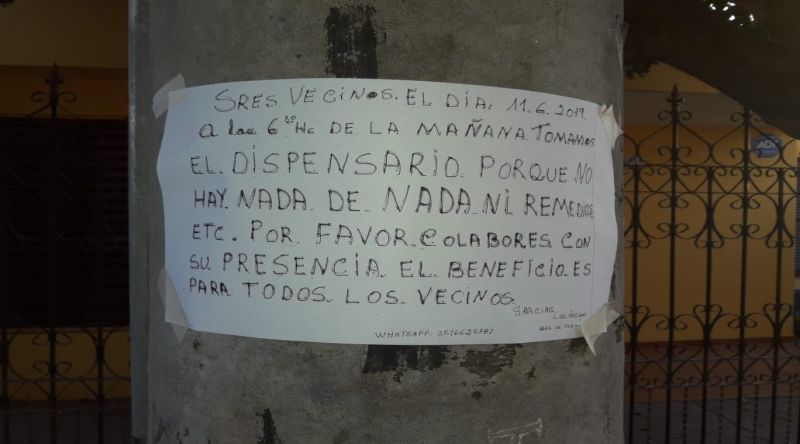 SRES. VECINOS. EL DIA: 11.6.2019
a las 6 30 Hs DE LA MAÑANA. TOMAMOS
EL. DISPENSARIO. PORQUE NO
HAY. NADA. DE. NADA. NI REMEDIOS
ETC. POR. FAVOR. COLABORES. CON
SU. PRESENCIA. EL. BENEFICIO. ES
PARA. TODOS. LOS. VECINOS.
GRACIAS.
LOS VECINOS
WHATSAPP. 3516625787
ADT